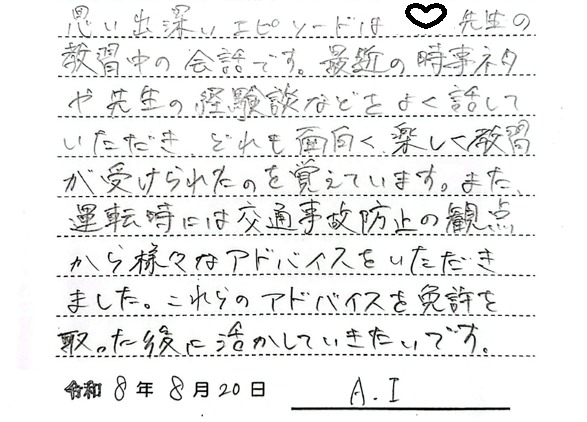 思い出深いエピソードは♡先生の
教習中の会話です。最近の時事ネタ
や先生の経験談などをよく話して
いただき、どれも面白く、楽しく教習
が受けられたのを覚えています。また、
運転時には交通事故防止の観点
から様々なアドバイスをいただき
ました。これらのアドバイスを免許を
取った後に活かしていきたいです。
令和8年8月20日 A.I